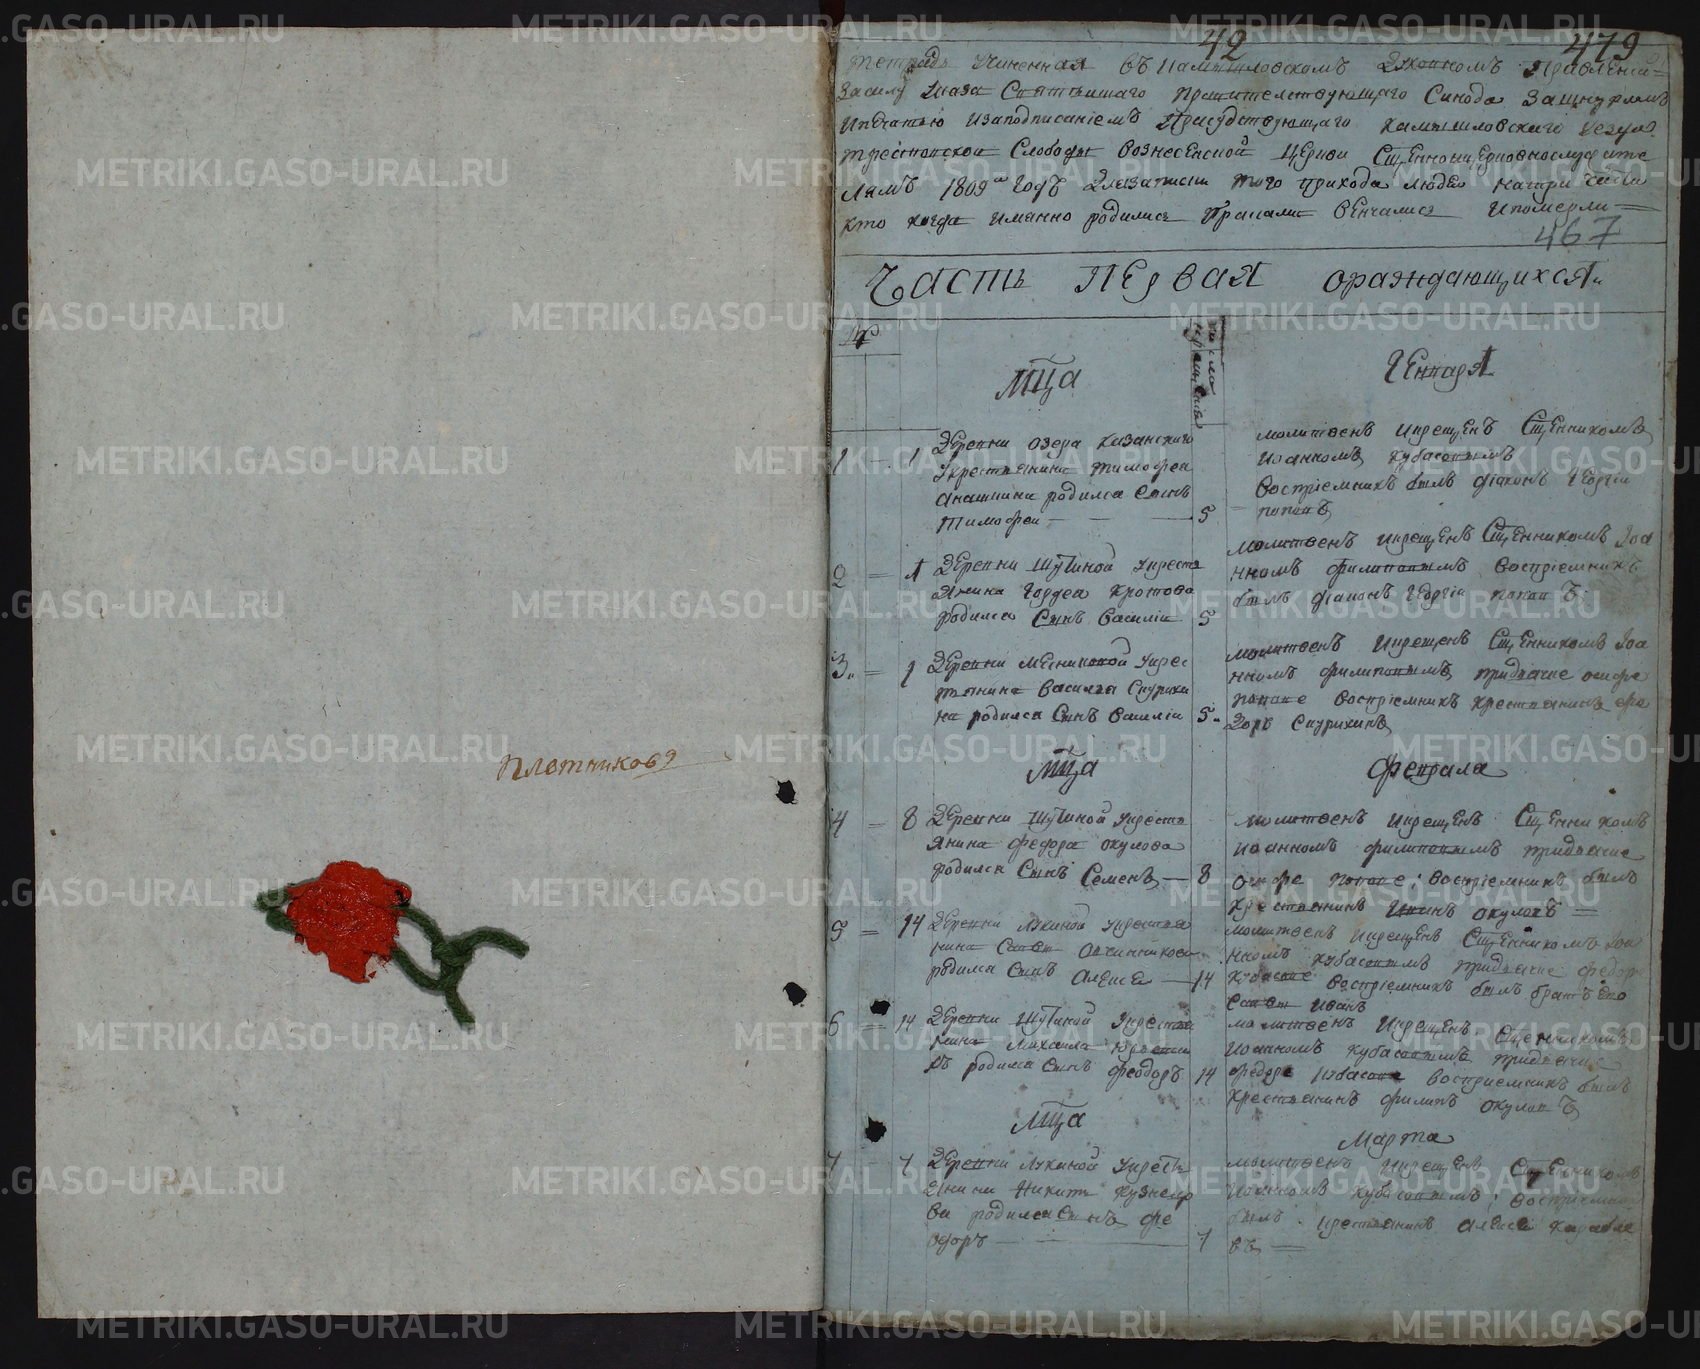 Плотниковъ
42
479
Тетрадь Учиненная въ Камышловскомъ Духовномъ Правленіи
засилу Указа Святѣишаго Правителствующаго Синода Зашнуромъ
ипечатью изаподписаніемъ Присудствующаго Камышловскаго уезда
слободы вознесенской церкви Сщенноицерковнослужите
лямъ 1809 Годъ длязаписки того прихода людеи натри части
кто когда имянно родились браками венчались ипомерли
467
Часть Первая ораждающихся
Мца
Генваря
1 1 Деревни озера казанскаго
укрестьянина тимофея
анашкина родился сынъ
Тимофеи 5
молитвенъ икрещенъ Сщенникомъ
иоанномъ кубасовымъ
Воспріемникъ былъ діаконъ Георгіи
поповъ
2 1 Деревни Шутиной укресть
янина Гордея Кротова
родился Сынъ Василіи 5
молитвенъ икрещенъ Сщенникомъ Іоа
нномъ филиповымъ воспріемникъ
былъ діаконъ Георгіи поповъ
3 1 Деревни укрес
тянина василья Спурихи
на родился Сынъ Василіи 5
молитвенъ икрещенъ Сщенникомъ Іоа
нномъ филиповымъ придьячке
попове воспріемникъ крестьянинъ фе
доръ Спурихинъ
Мца
Февраля
4 8 Деревни Шутиной укресть
янина федора окулова
родился Сынъ Семенъ 8
молитвенъ икрещенъ Сщенникомъ
иоанномъ филиповымъ придьячке
попове воспріемникъ былъ
крестьянинъ окуловъ
5 14 Деревни Лукиной укрестья
нина Савы Овчинникова
родился Сынъ Алексеи 14
молитвенъ икрещенъ Сщенникомъ Іоа
нномъ кубасовымъ придьячке федоре
кубасове воспріемникъ былъ братъ ево
иванъ
6 14 Деревни Шутиной укрестья
нина Михаила
родился Сынъ феодоръ 14
молитвенъ икрещенъ Сщенникомъ
иоанномъ кубасовымъ придьячке
федоре кубасове воспріемникъ былъ
крестьянинъ филипъ окуловъ
Мца
Марта
7 7 Деревни Лукиной укресть
янина Никиты кузнецо
ва родился Сынъ фе
одоръ 7
молитвенъ икрещенъ Сщенникомъ
иоанномъ кубасовымъ воспріемникъ
былъ крестьянинъ Алексеи
въ